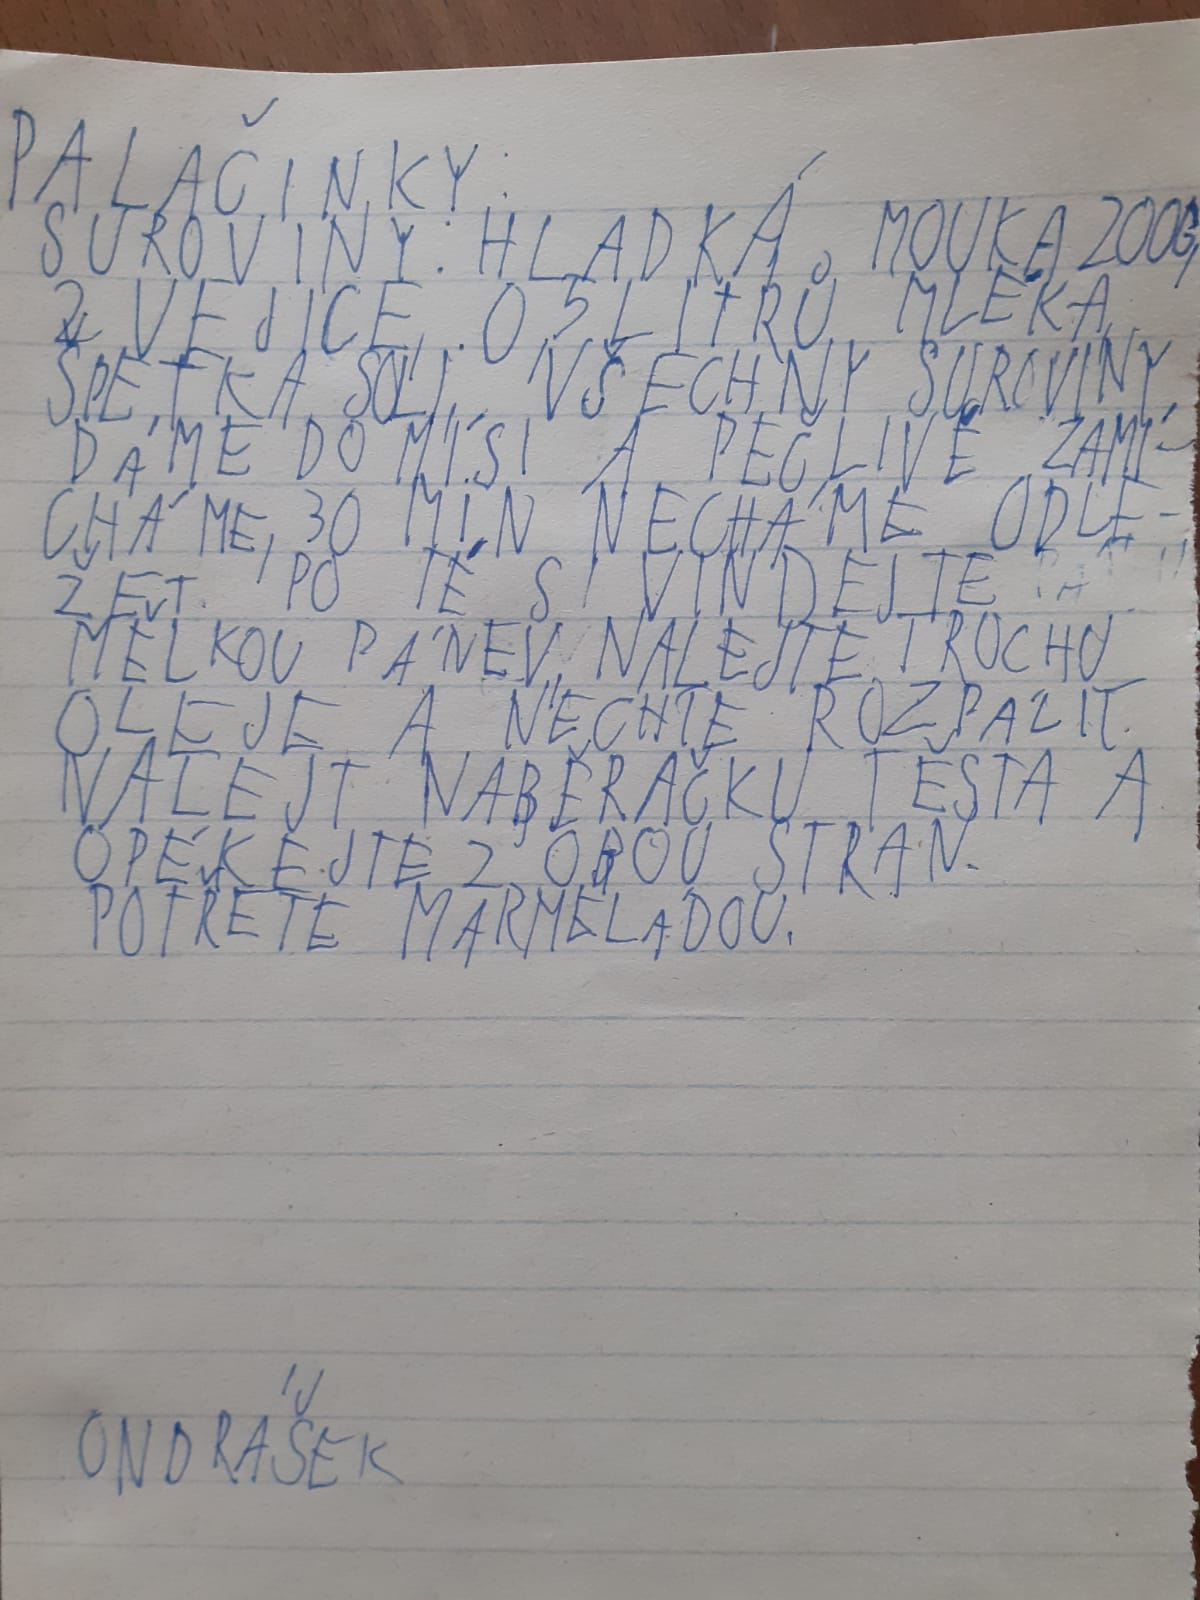 PALAČINKY:
SUROVINY: HLADKÁ MOUKA 200G,
2 VEJICE, 0,5 LITRŮ MLÉKA,
ŠPETKA SOLI, VŠECHNY SUROVINY
DÁME DO MÍSI A PEČLIVĚ ZAMÍ-
CHÁME, 30 MIN NECHÁME ODLE-
ŽET. PO TÉ SI VINDEJTE
MĚLKOU PÁNEV, NALEJTE TROCHU
OLEJE A NECHTE ROZPALIT.
NALEJT NABĚRAČKU TĚSTA A
OPÉKEJTE Z OBOU STRAN.
POTŘETE MARMELADOU.
ONDRÁŠEK